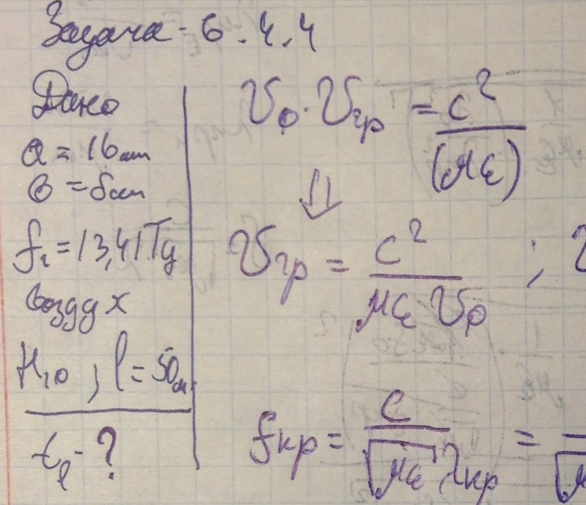 Задача - 6.4.4
Дано
a = 16 мм
в = 8 мм
f₂ = 13,41 Гц
воздух
H₁₀, l = 50 м
t_l - ?
V_ф · V_гр = c² / (με)
⇓
V_гр = c² / με V_ф ;
f_кр = c / √με λ_кр =